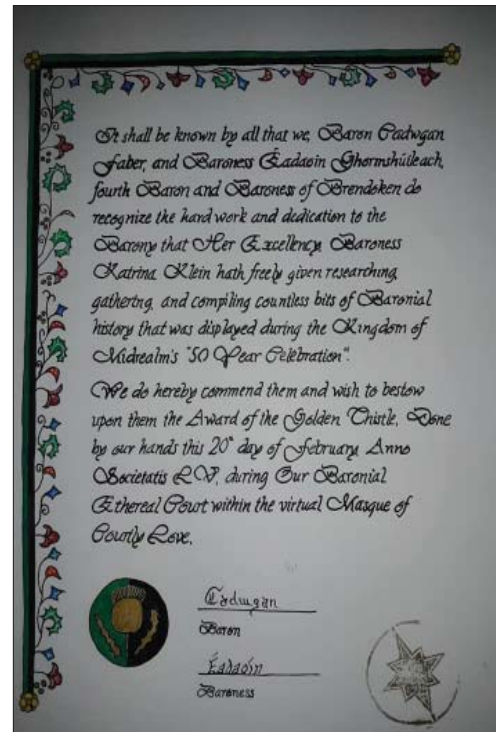 It shall be known by all that we, Baron Cadwgan
Faber, and Baroness Éadaoin Ghormshúileach,
fourth Baron and Baroness of Brendoken do
recognize the hard work and dedication to the
Barony that Her Excellency, Baroness
Katrina Klein hath freely given researching,
gathering, and compiling countless bits of Baronial
history that was displayed during the Kingdom of
Midrealm's "50 Year Celebration".
We do hereby commend them and wish to bestow
upon them the Award of the Golden Thistle. Done
by our hands this 20th day of February, Anno
Societatis LV, during Our Baronial
Ethereal Court within the virtual Masque of
Courtly Love.
Cadwgan
Baron
Éadaoin
Baroness